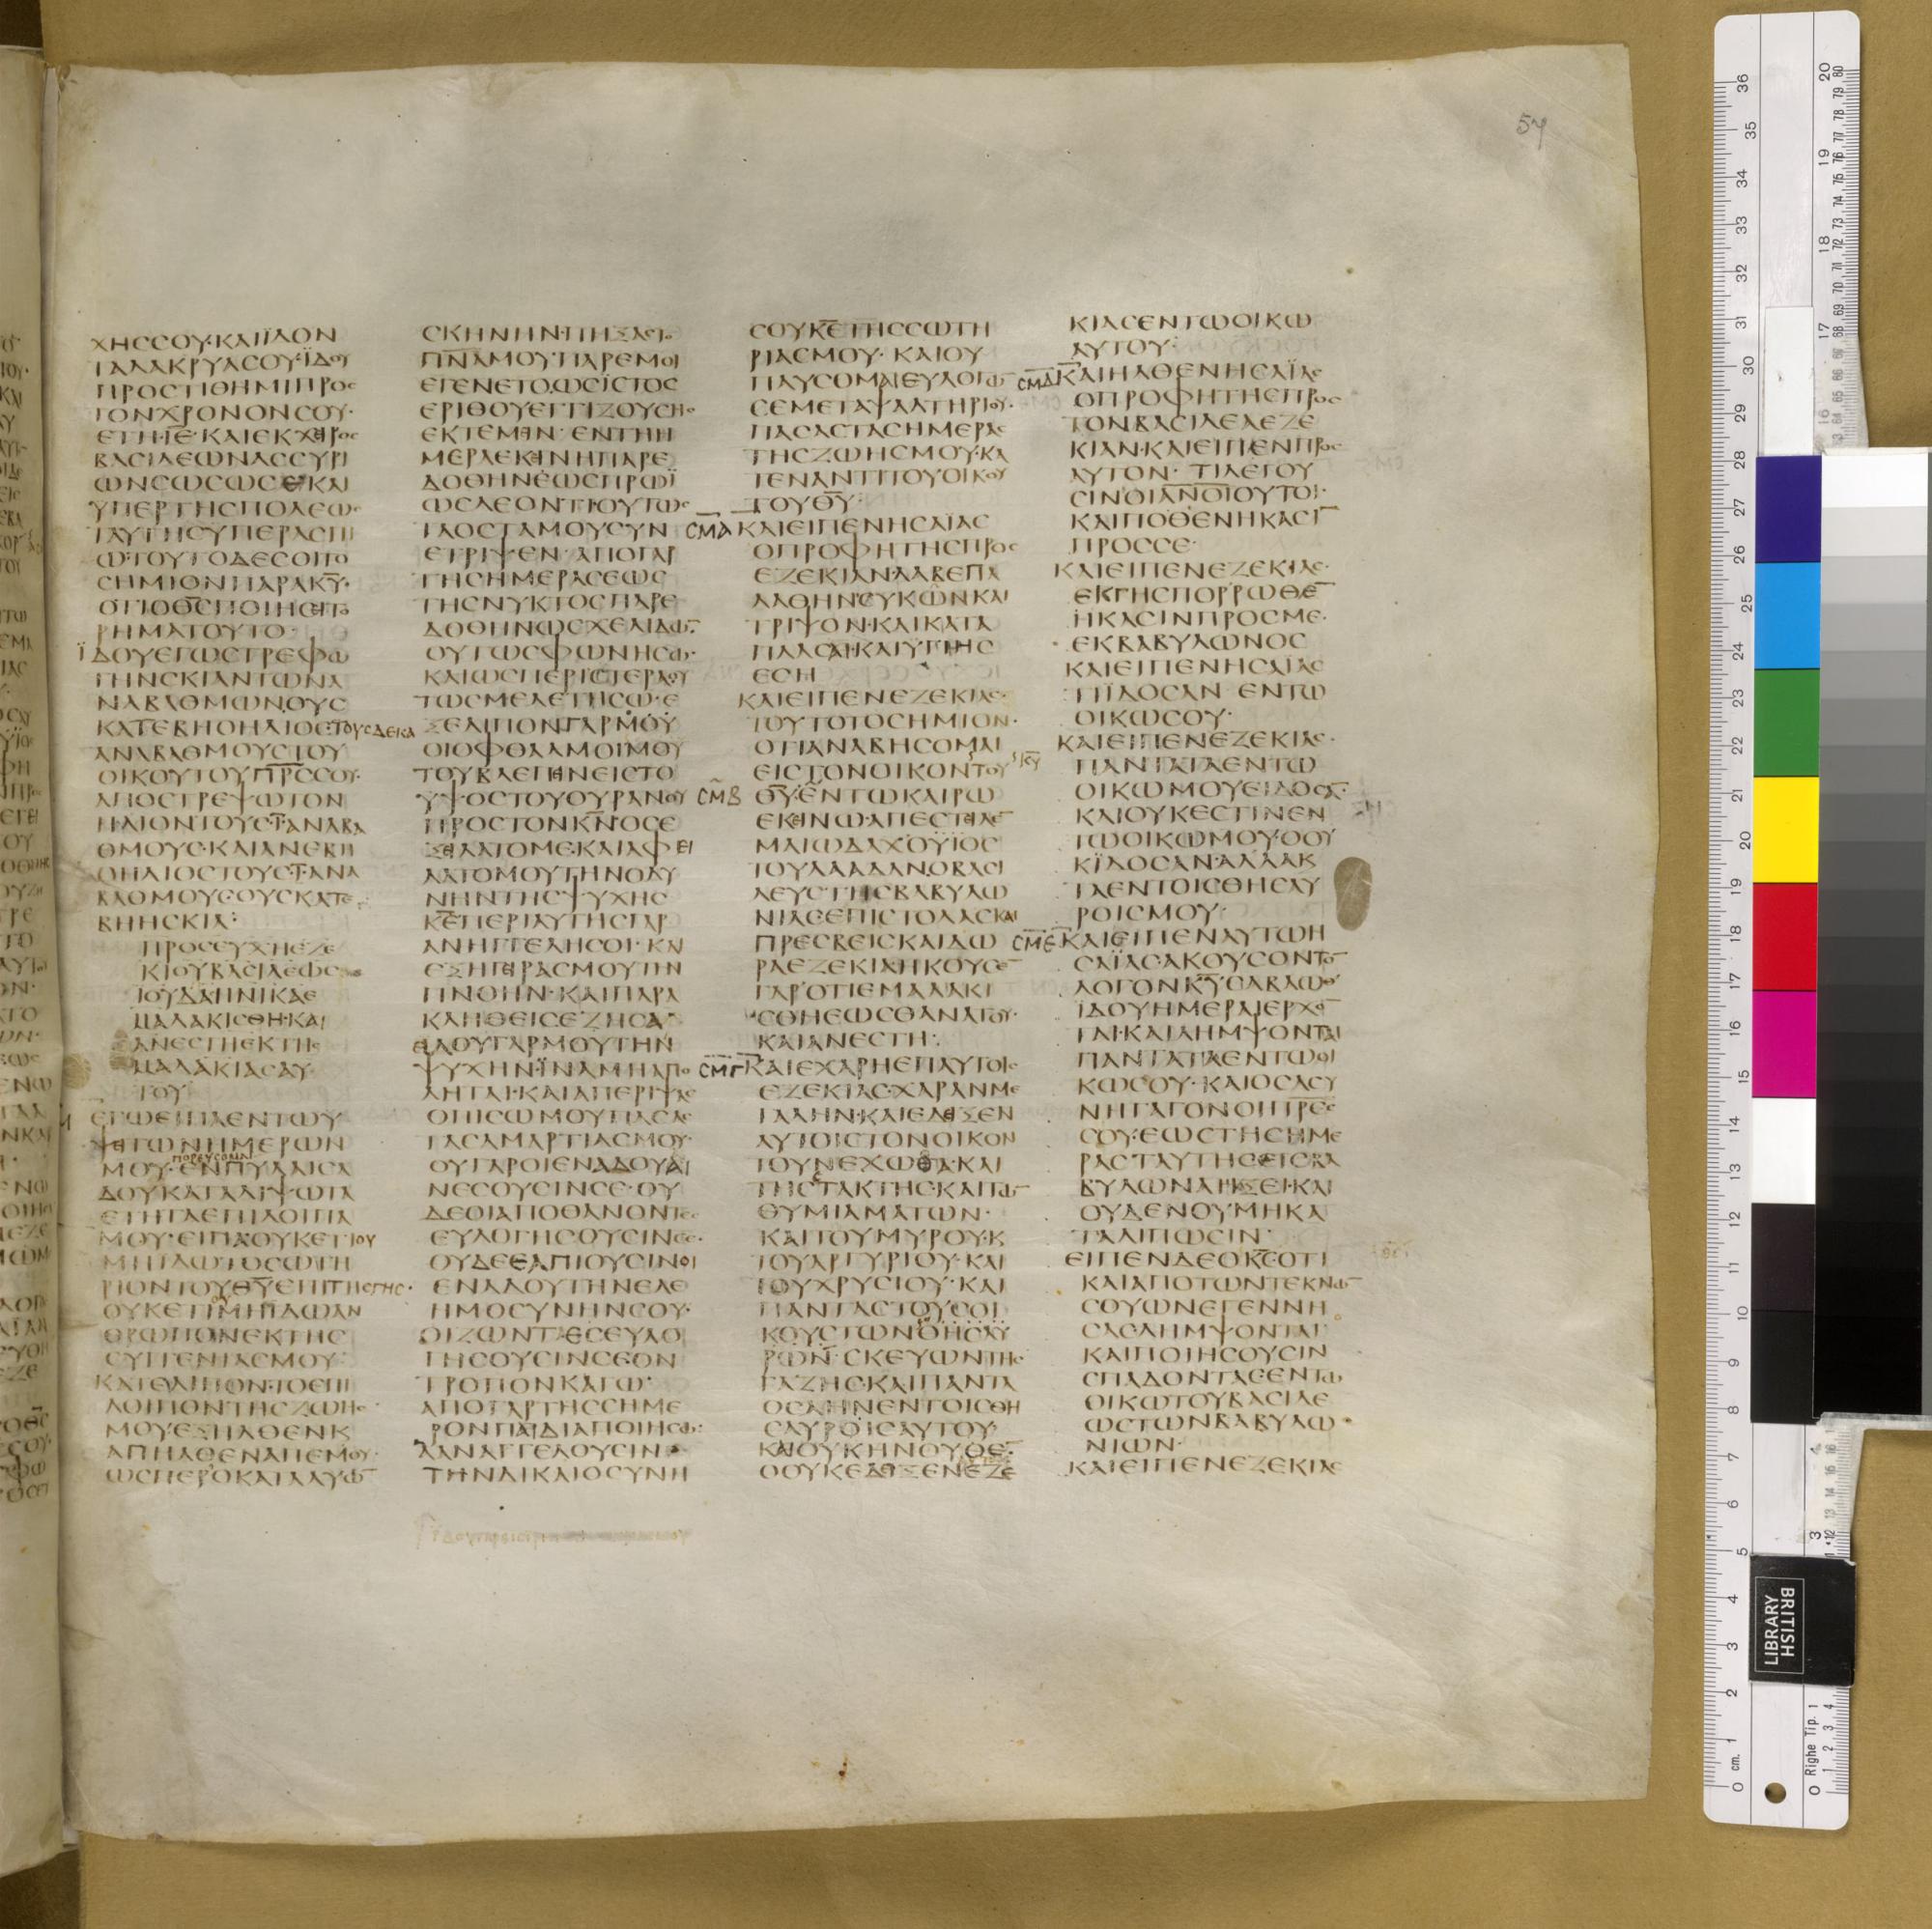 57
ΧΗССΟΥ·ΚΑΙΪΔΟΝ
ΤΑΔΑΚΡΥΑСΟΥ·ΪΔΟΥ
ΠΡΟСΤΙΘΗΜΙΠΡΟС
ΤΟΝΧΡΟΝΟΝСΟΥ·
ΕΤΗΙΕ·ΚΑΙΕΚΧΕΙΡΟС
ΒΑСΙΛΕΩΝΑССΥΡΙ
ΩΝСΩСΩСΕΚΑΙ
ΥΠΕΡΤΗСΠΟΛΕΩС
ΤΑΥΤΗСΥΠΕΡΑСΠΙ
Ω·ΤΟΥΤΟΔΕСΟΙΤΟ
СΗΜΙΟΝΠΑΡΑΚΥ·
ΟΤΙΟΘСΠΟΙΗСΕΙΤΟ
ΡΗΜΑΤΟΥΤΟ·
ΪΔΟΥΕΓΩСΤΡΕΦΩ
ΤΗΝСΚΙΑΝΤΩΝΑ
ΝΑΒΑΘΜΩΝΟΥС
ΚΑΤΕΒΗΟΗΛΙΟСΤΟΥСΔΕΚΑ
ΑΝΑΒΑΘΜΟΥСΤΟΥ
ΟΙΚΟΥΤΟΥΠΡССΟΥ·
ΑΠΟСΤΡΕΨΩΤΟΝ
ΗΛΙΟΝΤΟΥСΙΑΝΑΒΑ
ΘΜΟΥС·ΚΑΙΑΝΕΒΗ
ΟΗΛΙΟСΤΟΥСΙΑΝΑ
ΒΑΘΜΟΥСΟΥСΚΑΤΕ
ΒΗΗСΚΙΑ:
ΠΡΟСΕΥΧΗΕΖΕ
ΚΙΟΥΒΑСΙΛΕΩС
ΙΟΥΔΑΗΝΙΚΑΕ
ΜΑΛΑΚΙСΘΗ·ΚΑΙ
ΑΝΕСΤΗΕΚΤΗС
ΜΑΛΑΚΙΑСΑΥ
ΤΟΥ
ΕΓΩΕΙΠΑΕΝΤΩΥ
ΨΕΙΤΩΝΗΜΕΡΩΝ
ΠΟΡΕΥСΟΜΑΙ
ΜΟΥ·ΕΝΠΥΛΑΙСΑ
ΔΟΥΚΑΤΑΛΙΨΩΤΑ
ΕΤΗΤΑΕΠΙΛΟΙΠΑ
ΜΟΥ·ΕΙΠΑΟΥΚΕΤΙΟΥ
ΜΗΙΔΩΤΟСΩΤΗ
ΡΙΟΝΤΟΥΘΥΕΠΙΤΗСΓΗС·
ΟΥΚΕΤΙΜΗΙΔΩΑΝ
ΘΡΩΠΟΝΕΚΤΗС
СΥΓΓΕΝΙΑСΜΟΥ
ΚΑΤΕΛΙΠΟΝΤΟΕΠΙ
ΛΟΙΠΟΝΤΗСΖΩΗС
ΜΟΥΕΞΗΛΘΕΝΚ
ΑΠΗΛΘΕΝΑΠΕΜΟΥ·
ΩСΠΕΡΟΚΑΤΑΛΥΩ
СΚΗΝΗΝ·ΠΗΞΑСΤΟ
ΠΝΑΜΟΥ·ΠΑΡΕΜΟΙ
ΕΓΕΝΕΤΟ·ΩСΪСΤΟС
ΕΡΙΘΟΥΕΓΓΙΖΟΥСΗС
ΕΚΤΕΜΕΙΝ·ΕΝΤΗΗ
ΜΕΡΑΕΚΕΙΝΗΠΑΡΕ
ΔΟΘΗΝΕΩСΠΡΩΪ
ΩСΛΕΩΝΤΙΟΥΤΩС
ΤΑΟСΤΑΜΟΥСΥΝ
ΕΤΡΙΨΕΝ·ΑΠΟΓΑΡ
ΤΗСΗΜΕΡΑСΕΩС
ΤΗСΝΥΚΤΟСΠΑΡΕ
ΔΟΘΗΝΩСΧΕΛΙΔΩ·
ΟΥΤΩСΦΩΝΗСΩ·
ΚΑΙΩСΠΕΡΙСΤΕΡΑΟΥ
ΤΩСΜΕΛΕΤΗСΩ·Ε
ΞΕΛΙΠΟΝΓΑΡΜΟΥ
ΟΙΟΦΘΑΛΜΟΙΜΟΥ
ΤΟΥΒΛΕΠΕΙΝΕΙСΤΟ
ΥΨΟСΤΟΥΟΥΡΑΝΟΥ
ΠΡΟСΤΟΝΚΝΟСΕ
ΞΕΙΛΑΤΟΜΕ·ΚΑΙΑΦΕΙ
ΛΑΤΟΜΟΥΤΗΝΟΔΥ
ΝΗΝΤΗСΨΥΧΗС
ΚΕΠΕΡΙΑΥΤΗСΓΑΡ
ΑΝΗΓΓΕΛΗСΟΙ·ΚΑΙ
ΕΞΗΓΕΙΡΑСΜΟΥΤΗΝ
ΠΝΟΗΝ·ΚΑΙΠΑΡΑ
ΚΛΗΘΕΙСΕΖΗСΑ
ΕΙΛΟΥΓΑΡΜΟΥΤΗΝ
ΨΥΧΗΝ·ΪΝΑΜΗΑΠΟ
ΛΗΤΑΙ·ΚΑΙΑΠΕΡΙΨΑС
ΟΠΙСΩΜΟΥΠΑСΑС
ΤΑСΑΜΑΡΤΙΑСΜΟΥ·
ΟΥΓΑΡΟΙΕΝΑΔΟΥΑΙ
ΝΕСΟΥСΙΝСΕ·ΟΥ
ΔΕΟΙΑΠΟΘΑΝΟΝΤΕС
ΕΥΛΟΓΗСΟΥСΙΝСΕ·
ΟΥΔΕΕΛΠΙΟΥСΙΝΟΙ
ΕΝΑΔΟΥΤΗΝΕΛΕ
ΗΜΟСΥΝΗΝСΟΥ·
ΟΙΖΩΝΤΕСΕΥΛΟ
ΓΗСΟΥСΙΝСΕΟΝ
ΤΡΟΠΟΝΚΑΓΩ·
ΑΠΟΓΑΡΤΗССΗΜΕ
ΡΟΝΠΑΙΔΙΑΠΟΙΗСΩ·
ΑΑΝΑΓΓΕΛΟΥСΙΝ
ΤΗΝΔΙΚΑΙΟСΥΝΗ
СΟΥΚΕΤΗССΩΤΗ
ΡΙΑСΜΟΥ·ΚΑΙΟΥ
ΠΑΥСΟΜΑΙΕΥΛΟΓΩ
СΕΜΕΤΑΨΑΛΤΗΡΙΟΥ·
ΠΑСΑСΤΑСΗΜΕΡΑС
ΤΗСΖΩΗСΜΟΥ·ΚΑ
ΤΕΝΑΝΤΙΤΟΥΟΙΚΟΥ
ΤΟΥΘΥ·
СΜΑ ΚΑΙΕΙΠΕΝΗСΑΪΑС
ΟΠΡΟΦΗΤΗСΠΡΟС
ΕΖΕΚΙΑΝ·ΛΑΒΕΠΑ
ΛΑΘΗΝСΥΚΩΝΚΑΙ
ΤΡΙΨΟΝ·ΚΑΙΚΑΤΑ
ΠΛΑСΑΙ·ΚΑΙΥΓΙΗС
ΕСΗ
ΚΑΙΕΙΠΕΝΕΖΕΚΙΑС·
ΤΟΥΤΟΤΟСΗΜΙΟΝ·
ΟΤΙΑΝΑΒΗСΟΜΑΙ
ΕΙСΤΟΝΟΙΚΟΝΤΟΥ
СΜΒ ΘΥ·ΕΝΤΩΚΑΙΡΩ
ΕΚΕΙΝΩ·ΑΠΕСΤΕΙΛΕ
ΜΑΙΩΔΑΧΟΥΪΟС
ΤΟΥΛΑΑΔΑΝΟΒΑСΙ
ΛΕΥСΤΗСΒΑΒΥΛΩ
ΝΙΑСΕΠΙСΤΟΛΑСΚΑΙ
ΠΡΕСΒΕΙСΚΑΙΔΩ
ΡΑΕΖΕΚΙΑΗΚΟΥСΕ
ΓΑΡΟΤΙΕΜΑΛΑΚΙ
СΘΗΕΩСΘΑΝΑΤΟΥ·
ΚΑΙΑΝΕСΤΗ:
СΜΓ ΚΑΙΕΧΑΡΗΕΠΑΥΤΟΙС
ΕΖΕΚΙΑСΧΑΡΑΝΜΕ
ΓΑΛΗΝ·ΚΑΙΕΔΕΙΞΕΝ
ΑΥΤΟΙСΤΟΝΟΙΚΟΝ
ΤΟΥΝΕΧΩΘΑ·ΚΑΙ
ΤΗСΤΑΚΤΗС·ΚΑΙΤΩ
ΘΥΜΙΑΜΑΤΩΝ·
ΚΑΙΤΟΥΜΥΡΟΥ·Κ
ΤΟΥΑΡΓΥΡΙΟΥ·ΚΑΙ
ΤΟΥΧΡΥСΙΟΥ·ΚΑΙ
ΠΑΝΤΑСΤΟΥСΟΙ
ΚΟΥСΤΩΝΘΗСΑΥ
ΡΩΝ·СΚΕΥΩΝΤΗС
ΓΑΖΗС·ΚΑΙΠΑΝΤΑ
ΟСΑΗΝΕΝΤΟΙСΘΗ
СΑΥΡΟΙСΑΥΤΟΥ·
ΚΑΙΟΥΚΗΝΟΥΘΕ
ΟΟΥΚΕΔΕΙΞΕΝΕΖΕ
ΚΙΑСΕΝΤΩΟΙΚΩ
ΑΥΤΟΥ·
СΜΔ ΚΑΙΗΛΘΕΝΗСΑΪΑС
ΟΠΡΟΦΗΤΗСΠΡΟС
ΤΟΝΒΑСΙΛΕΑΕΖΕ
ΚΙΑΝ·ΚΑΙΕΙΠΕΝΠΡΟС
ΑΥΤΟΝ·ΤΙΛΕΓΟΥ
СΙΝΟΙΑΝΟΙΟΥΤΟΙ·
ΚΑΙΠΟΘΕΝΗΚΑСΙ
ΠΡΟССΕ·
ΚΑΙΕΙΠΕΝΕΖΕΚΙΑС·
ΕΚΓΗСΠΟΡΡΩΘΕ
ΗΚΑСΙΝΠΡΟСΜΕ·
ΕΚΒΑΒΥΛΩΝΟС
ΚΑΙΕΙΠΕΝΗСΑΙΑС
ΤΙΪΔΟСΑΝ·ΕΝΤΩ
ΟΙΚΩСΟΥ·
ΚΑΙΕΙΠΕΝΕΖΕΚΙΑС·
ΠΑΝΤΑΤΑΕΝΤΩ
ΟΙΚΩΜΟΥΕΙΔΟСΑ·
ΚΑΙΟΥΚΕСΤΙΝΕΝ
ΤΩΟΙΚΩΜΟΥ·ΟΟΥ
ΚΪΔΟСΑΝ·ΑΛΛΑΚ
ΤΑΕΝΤΟΙСΘΗСΑΥ
ΡΟΙСΜΟΥ·
СΜΕ ΚΑΙΕΙΠΕΝΑΥΤΩΗ
СΑΪΑС·ΑΚΟΥСΟΝΤΟ
ΛΟΓΟΝΚΥСΑΒΑΩΘ
ΪΔΟΥΗΜΕΡΑΙΕΡΧΟ
ΤΑΙ·ΚΑΙΛΗΜΨΟΝΤΑΙ
ΠΑΝΤΑΤΑΕΝΤΩΟΙ
ΚΩСΟΥ·ΚΑΙΟСΑСΥ
ΝΗΓΑΓΟΝΟΙΠΡΕС
СΟΥ·ΕΩСΤΗСΗΜΕ
ΡΑСΤΑΥΤΗСΕΙСΒΑ
ΒΥΛΩΝΑΗΞΕΙ·ΚΑΙ
ΟΥΔΕΝΟΥΜΗΚΑ
ΤΑΛΙΠΩСΙΝ·
ΕΙΠΕΝΔΕΟΚС·ΟΤΙ
ΚΑΙΑΠΟΤΩΝΤΕΚΝΩ
СΟΥΩΝΕΓΕΝΝΗ
СΑСΛΗΜΨΟΝΤΑΙ
ΚΑΙΠΟΙΗСΟΥСΙΝ
СΠΑΔΟΝΤΑСΕΝΤΩ
ΟΙΚΩΤΟΥΒΑСΙΛΕ
ΩСΤΩΝΒΑΒΥΛΩ
ΝΙΩΝ·
ΚΑΙΕΙΠΕΝΕΖΕΚΙΑС
BRITISH
LIBRARY
Righe Tip. 1
cm.